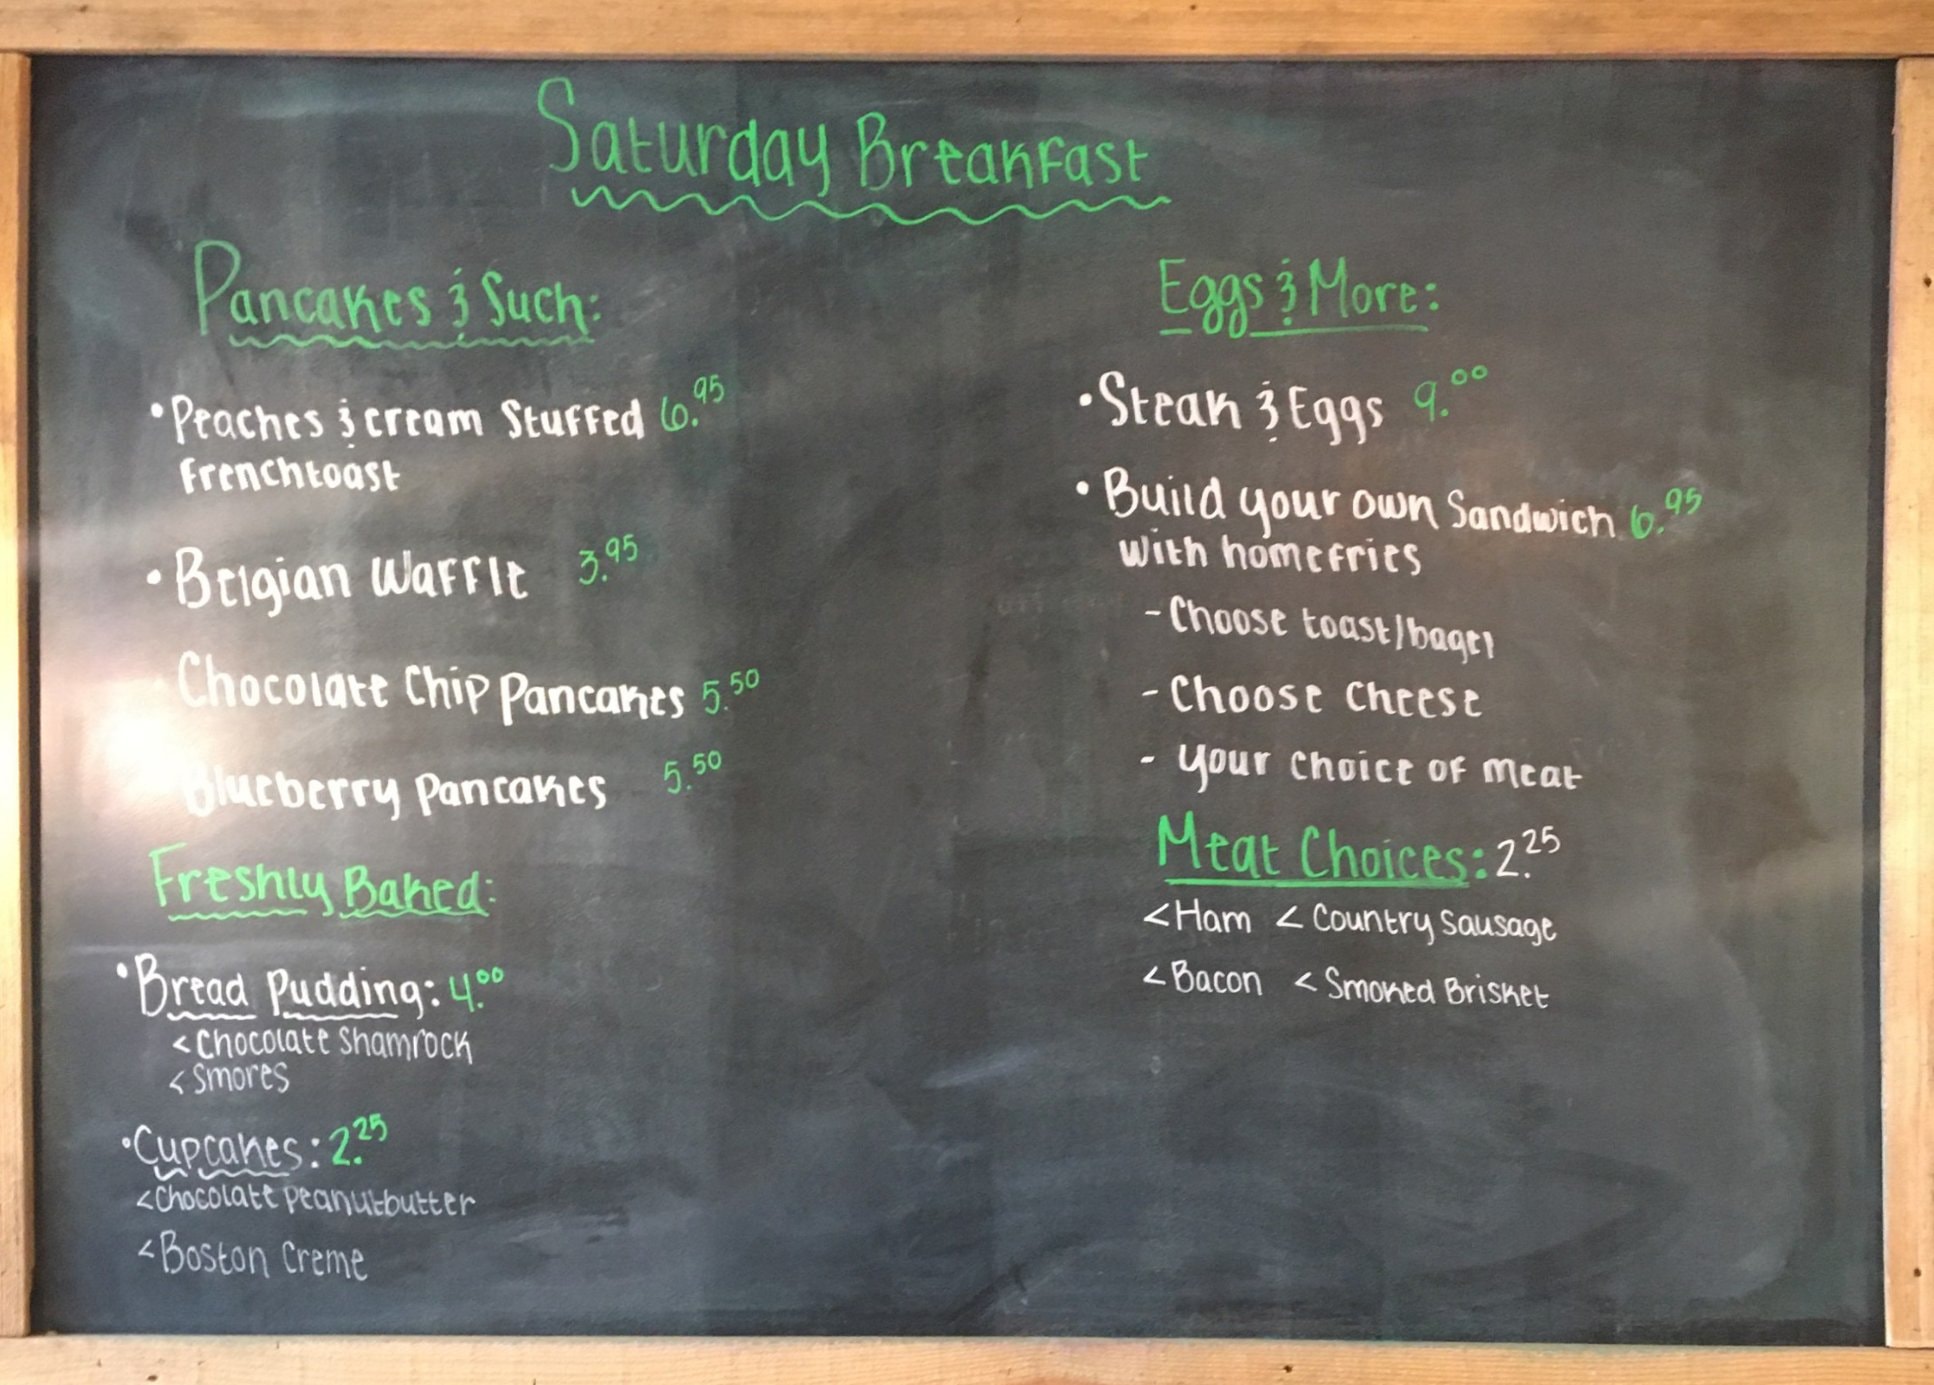 Saturday Breakfast
Pancakes & Such:
•Peaches & cream Stuffed 6.95
Frenchtoast
•Belgian Waffle 3.95
Chocolate Chip Pancakes 5.50
Blueberry Pancakes 5.50
Freshly Baked:
•Bread Pudding: 4.00
<Chocolate Shamrock
<Smores
•Cupcakes: 2.25
<Chocolate Peanutbutter
<Boston Creme
Eggs & More:
•Steak & Eggs 9.00
•Build your own Sandwich 6.95
with homefries
-Choose toast/bagel
-Choose Cheese
- Your choice of meat
Meat Choices: 2.25
<Ham <Country Sausage
<Bacon <Smoked Brisket